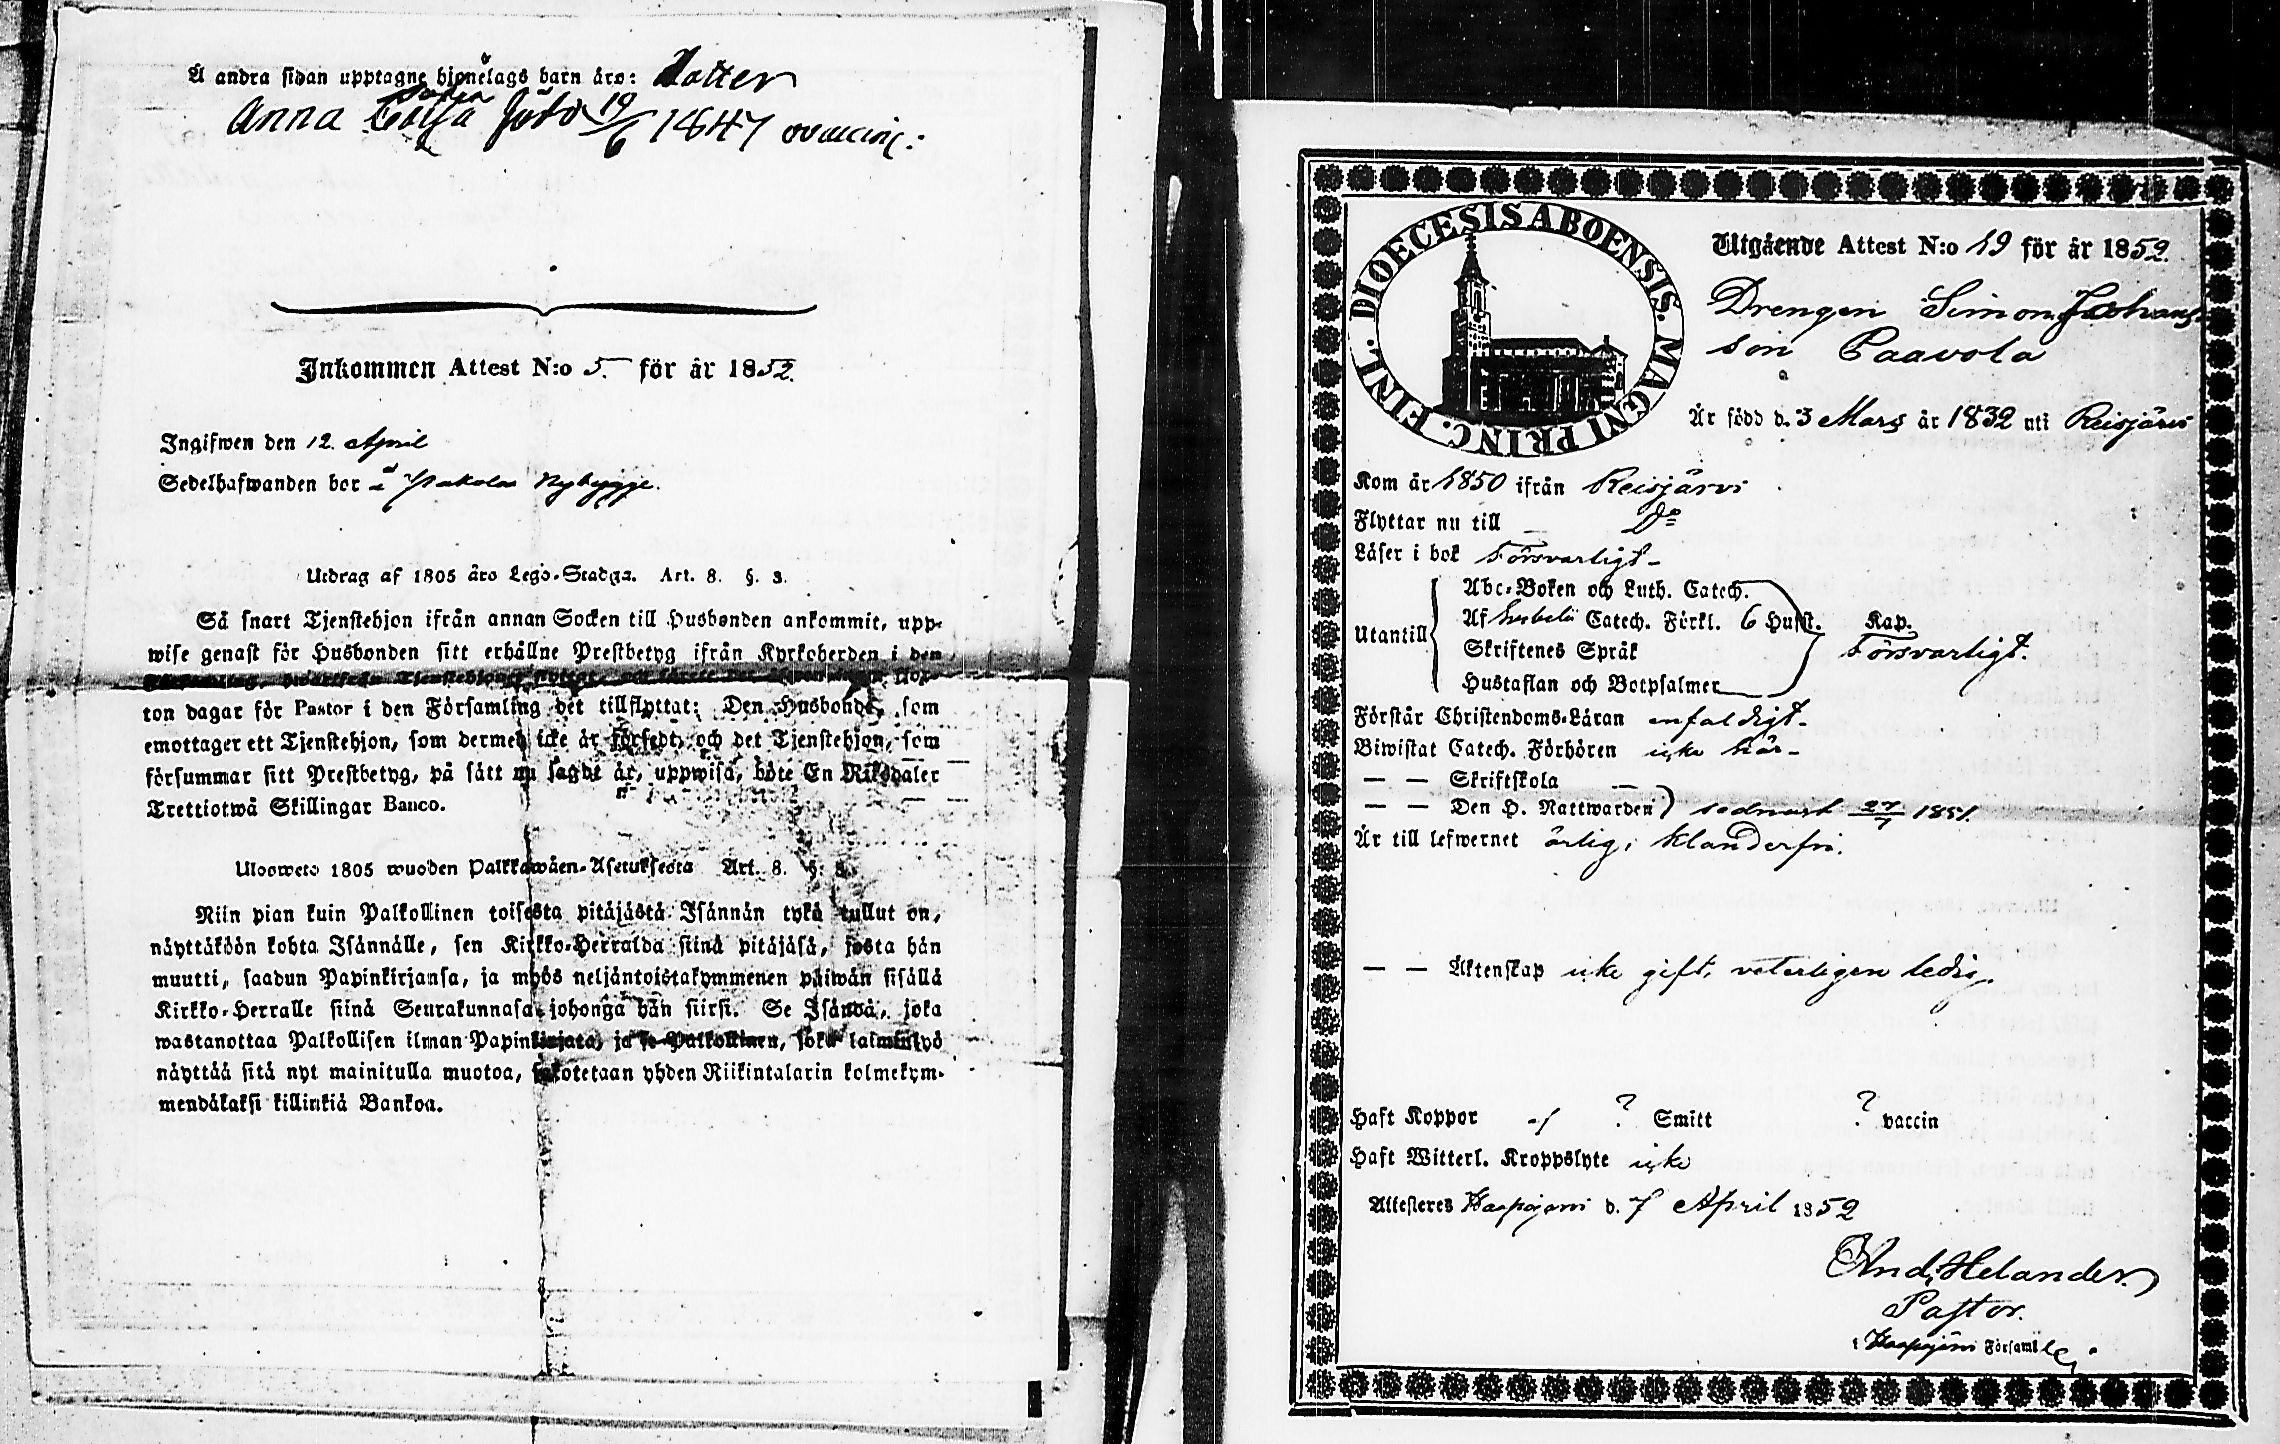 Å andra sidan upptagne hjonelags barn äro: Dotter
Anna Caisa född 19/6 1847 vaccin:
Inkommen Attest N:o 5. för år 1852.
Ingifwen den 12. April
Sedelhafwanden bor å nybygge.
Utdrag af 1805 års Lego-Stadga. Art. 8. §. 3.
Så snart Tjenstehjon ifrån annan Socken till Husbonden ankommit, upp-
wise genast för Husbonden sitt erhållne Prestbetyg ifrån Kyrkoherden i den
Församling, hwarifrån Tjenstehjonet flyttat, och
ton dagar för Pastor i den Församling det tillflyttat: Den Husbonde, som
emottager ett Tjenstehjon, som dermed icke är försedt, och det Tjenstehjon, som
försummar sitt Prestbetyg, på sätt nu sagdt är, uppwisa, böte En Riksdaler
Trettiotwå Skillingar Banco.
Ulosweto 1805 wuoden Palkkawäen-Asetuksesta Art. 8. §. 3.
Niin pian kuin Palkollinen toisesta pitäjästä Isännän tykö tullut on,
näyttäköön kohta Isännälle, sen Kirkko-Herralda siinä pitäjäsä, josta hän
muutti, saadun Papinkirjansa, ja myös neljäntoistakymmenen päiwän sisällä
Kirkko-Herralle siinä Seurakunnasa johonga hän siirsi. Se Isändä, joka
wastanottaa Palkollisen ilman Papinkirjata, ja se Palkollinen, joka laiminlyö
näyttää sitä nyt mainitulla muotoa, sakotetaan yhden Riikintalarin kolmekym-
mendäkaksi killinkiä Bankoa.
DIOECESIS ABOENSIS. MAGNI PRINC. FINL.
Utgående Attest N:o 19 för år 1852.
Drengen Simon Johans-
son Paavola
Är född d. 3 Mars år 1832 uti Reisjärvi
Kom år 1850 ifrån Reisjärvi
Flyttar nu till Do
Läser i bok Försvarligt
Utantill
Abc-Boken och Luth. Catech.
Af Catech. Förkl. 6 Hufst. Kap.
Skriftenes Språk Försvarligt.
Hustaflan och Botpsalmer
Förstår Christendoms-Läran enfaldigt.
Biwistat Catech. Förhören icke här
— — Skriftskola —
— — Den H. Nattwarden sednast 27/7 1851.
Är till lefwernet ärlig, klanderfri.
— — Äktenskap icke gift, veterligen ledig.
Haft Koppor af ? Smitt ? vaccin
Haft Witterl. Kroppslyte icke
Attesteres Haapajärvi d. 7 April 1852
And. Helander
Pastor.
i Haapajärvi Församl.